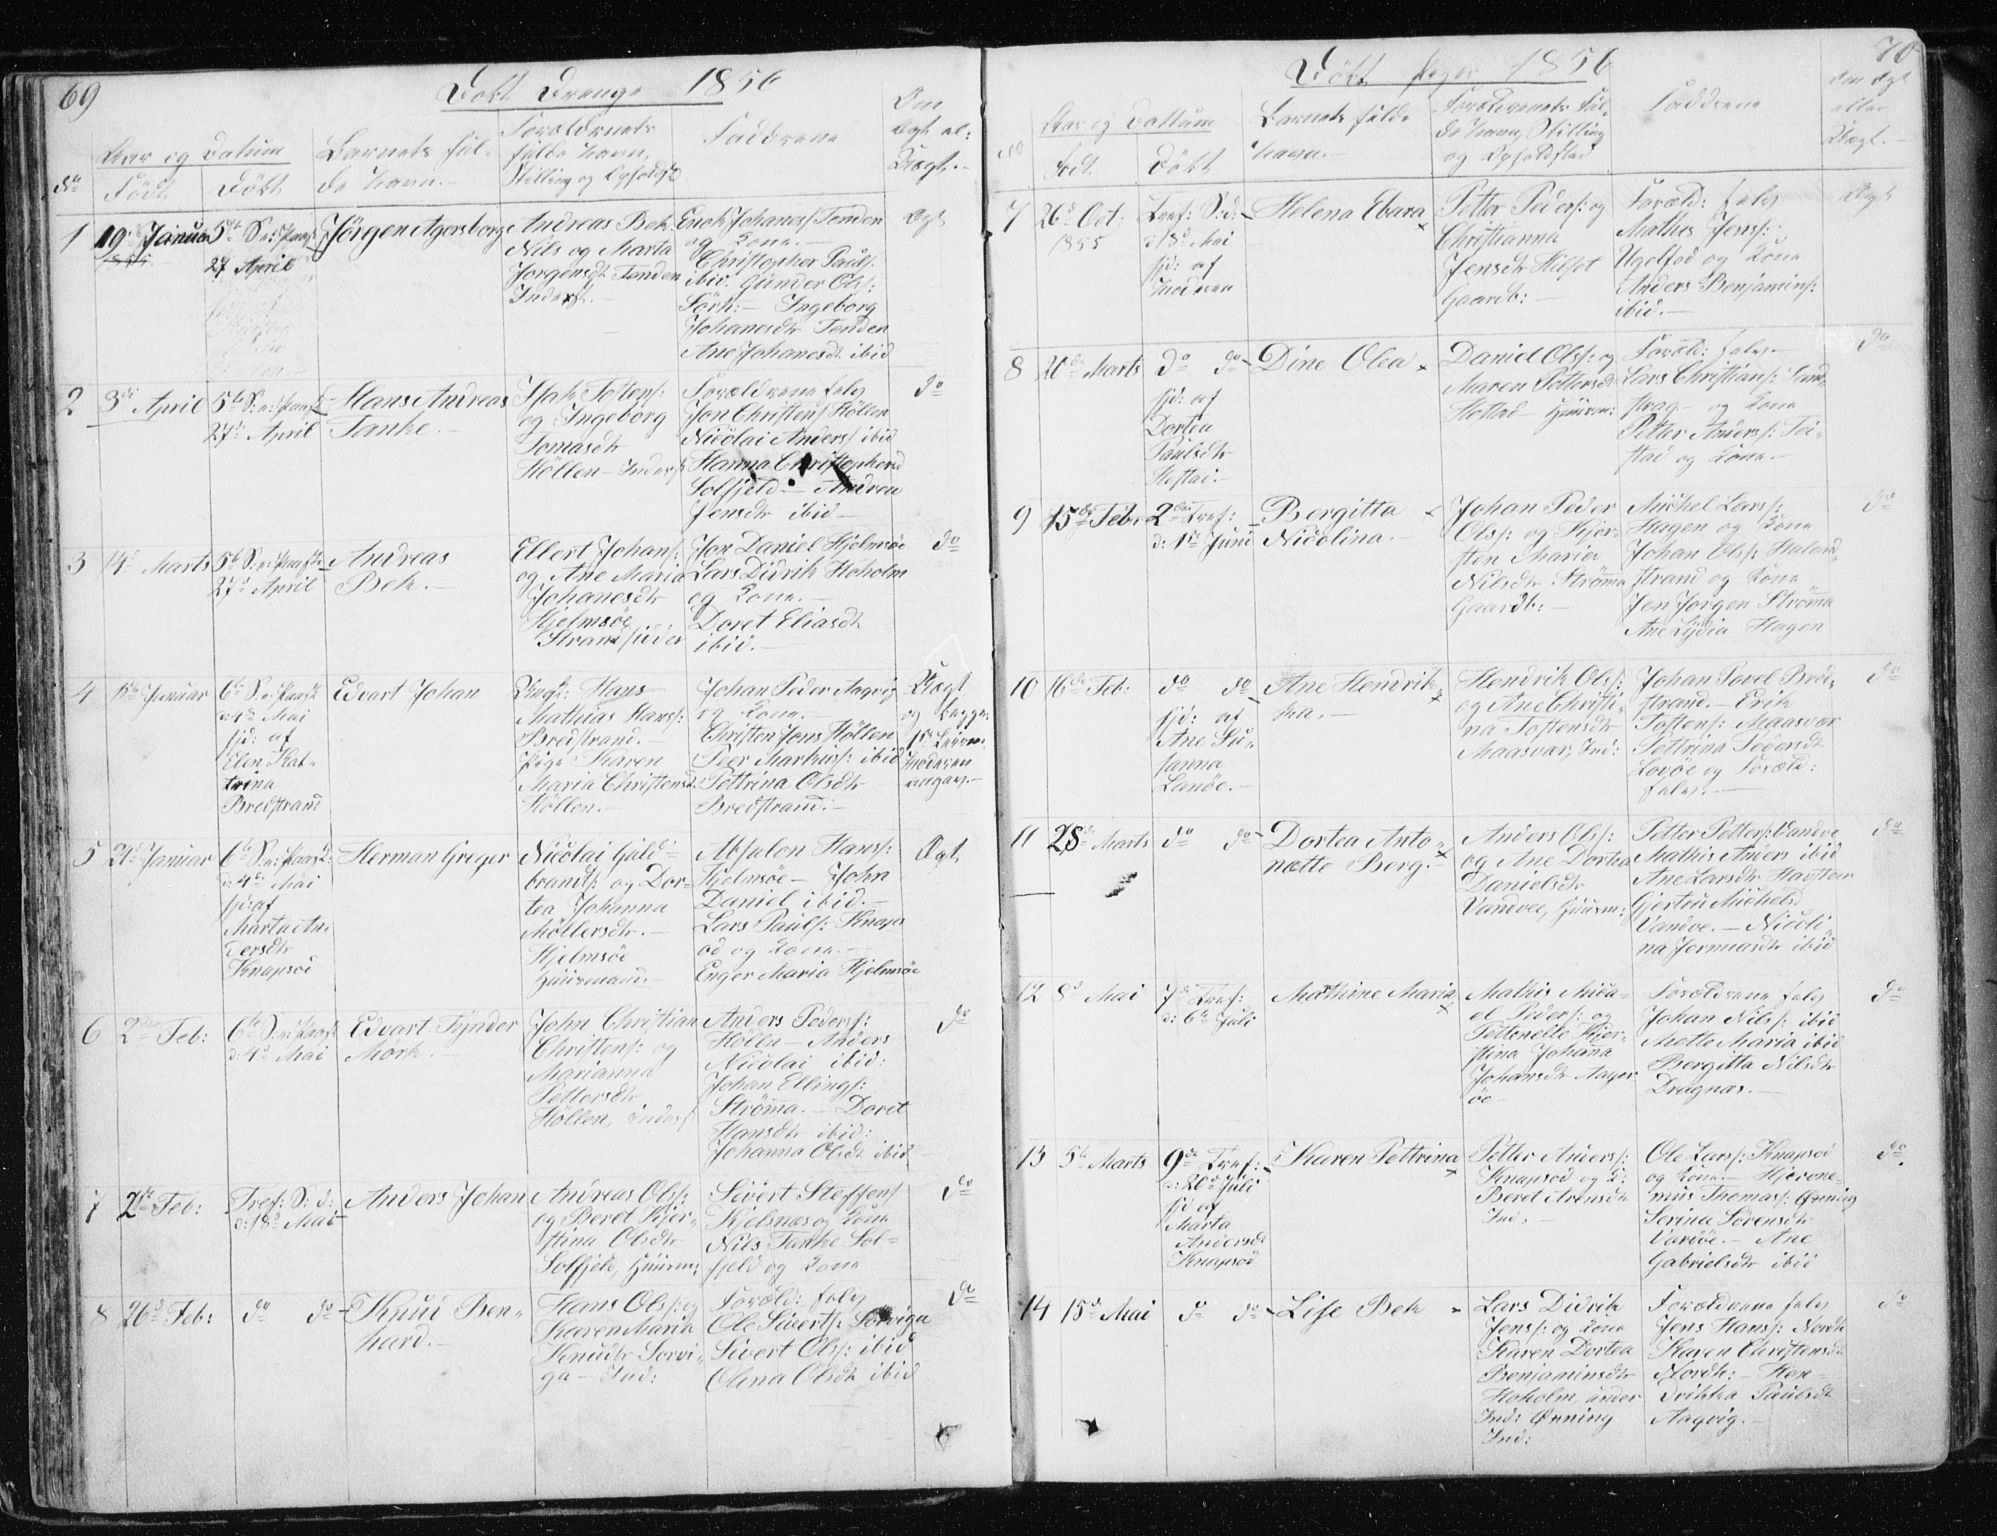 69
Døbt Drenge 1856
Aar og Datum
Barnets ful-
Forældrenes
Fadderne
Om
No
Født
Døbt
de Navn.-
fulde Navn,
Ægt el:
Stilling og Opholdst
Uægt.-
1
19 Januar
5te S. e: Paask
27 April
Jörgen Agersborg
Andreas Bek
Nils og Marta
Jorgensdt Tenden
Inderst.-
Enok Johanes: Tenden
og Kone.-
Christopher Pauls:
ibid. Günder Ols:
Sörh:- Ingeborg
Johanesdtr Tenden
Ane Johanesdt ibid
Ægt
2
3di April
5te S: e: Paask
27de April
Hans Andreas
Tanke.-
Isak Toftens:
og Ingeborg
Tomasdtr
Höllen- Inders:
Forældrene selv
Jon Christens: Höllen
Nicolai Anders: ibid
Hanna Christophersd
Solfjeld- Andrea
Jensdtr ibid-
do
3
14de Marts
5te S. e: Paask
27de April
Andreas
Bek.-
Ellert Johans:
og Ane Maria
Johanesdtr
Hjelmsöe
Strandsider
Jon Daniel Hjelmsöe
Lars Didrik Hoholm
og Kone.-
Doret Eliasdtr
ibid.-
do
4
Januar
6te S. e: Paask
d: 4de Mai
hjd: af
Elen Kat-
trina
Bredstrand
Edvart Johan
Ungk: Hans
Mathias Hans:
Bredstrand.-
Pige Karen
Maria Christensd.
Höllen.-
Johan Peder Aagvig
og Kone.-
Christen Jens: Höllen
Peer Markus: ibid
Pettrina Olsdtr
Bredstrand.-
Uægt
og begges
Moderen
angav.-
5
21de Januar
6te S. e: Paask:
d: 4de Mai
hjd: af
Marta An-
dersdtr
Knapsod
Herman Greger
Nicolai Guld-
brands: og Dor-
tea Johanna
Möllersdtr.-
Hjelmsöe
Huusmand.-
Absalon Hans:
Hjelmsöe- John
Daniel ibid.-
Lars Pauls: Knaps
od og Kone.-
Enger Maria Hjelmsöe
Ægt
6
2den Feb:
6te S. e: Paask
d: 4de Mai
Edvart Tynder
Mörk.-
John Christian
Christens: og
Marianna
Pettersdtr
Höllen, Inders:
Anders Peders:
Hölen- Anders
Nicolai ibid:
Johan Ellings:
Strøma.- Doret
Hansdtr ibid:
Johanna Olsdt ibid
do
7
2den Feb:
Tref: S: d:
d: 18de Mai
Anders Johan
Andreas Ols:
og Beret Kjer-
stina Olsdtr
Solfjeld, Huusm:
Sivert Steffens:
Kjelsnæs og Kone
Nils Tanke Sol-
fjeld og Kone
do
8
26de Feb:
do do
Knud Ben-
hard.-
Hans Ols: og
Karen Maria
Knudsdtr Sorvi-
ga- Ind:
Foræld: selv
Ole Siverts: Sorviga
Sivert Ols: ibid
Olina Olsdt ibid
do
70
Døbt Piger 1856
Aar og Dattum
Barnets fulde
Forældrenes Ful-
Fadderne
Om Ægt
No
Født
Døbt
Navn.
de Navn, Stilling
eller
og Opholdsted
Uægt.-
7
26de Oct:
1855
Tref: S: d:
d: 18de Mai
hjd: af
Moderen
Helena Ebara
Petter Peders: og
Christianna
Jensdtr Hilset
Gaardb:-
Foræld: selv
Mathis Jens:
Ugelfod og Kone
Anders Benjamins:
ibid.-
Ægt
8
20de Marts
do do
hjd: af
Dortea
Paulsdtr
Hestad.-
Dine Olea
Daniel Ols: og
Maren Pettersdt
Hestad- Huusm:
Foræld: selv.
Lars Christians: Sand-
strag- og Kone
Petter Anders: Tei-
stad og Kone.-
do
9
15de Feb:
2den Tref:
d: 1ste Juni
Bergitta
Nicolina.-
Johan Peder
Ols: og Kjer-
sten Maria
Nilsdtr Strøma
Gaardb:-
Michel Lars:
Hagen og Kone
Johan Ols: Haland-
strand og Kone
Jon Jorgen Strøma
Ane Lydia Hagen
do
10
16de Feb:
do do
hjd: af
Ane Su-
sanna
Lanöe.-
Ane Hendrik-
ka.-
Hendrik Ols:
og Ane Christi-
na Toftensdtr
Maasvær, Ind:
Johan Povel Bred-
strand.- Erik
Toftens: Maasvær
Pettrina Pedersdt
Lovöe og Foræld:
selv.-
do
11
28de Marts
do do
Dortea Anto-
nætte Berg.-
Anders Ols:
og Ane Dortea
Danielsdtr
Vandve, Huusm:
Petter Petters: Vandve
Mathis Anders ibid
Ane Larsdtr Havstein
Gjertru Michelsd
Vandve.- Nicoli-
na Jermiasdtr ibid
do
12
8de Mai
7de Tref:
d: 6te Juli
Mathine Maria
Mathis Mica-
el Peders: og
Pettenelle Kjer-
stina Johana
Johansdtr Aager
öe-
Forældrene selv
Johan Nils: ibid
Mette Maria ibid
Bergitta Nilsdtr
Dragnæs.-
do
13
5te Marts
9de Tref:
d: 20de Juli
hjd af
Marta
Andersdt
Knapsod
Karen Pettrina
Petter Anders:
Knapsod og K:
Beret Arensdt
Ind:-
Ole Lars: Knapsod
og Kone.- Hjerone-
mus Thomas: Ønning
Serina Sörensdtr
Vandve.- Ane
Gabrielsdtr ibid
do
14
15de Mai
do do
Lise Bek
Lars Didrik
Jens: og Kone
Karen Dortea
Benjaminsdtr
Hoholm under
Ind: Ønning
Ind:
Forældrene selv
Jens Hans: Nordh
Karen Christensdt
Nordh:- Hen-
drikka Paulsdt
Aagvig.-
do